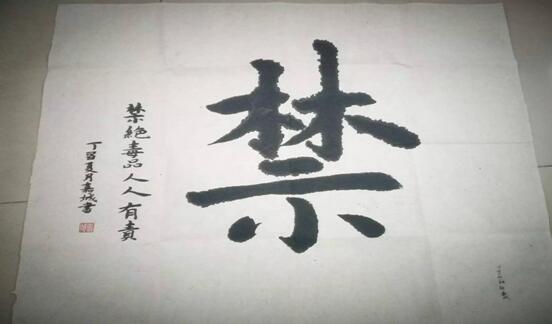 禁
禁絶毒品人人有責
丁酉夏月嘉城書